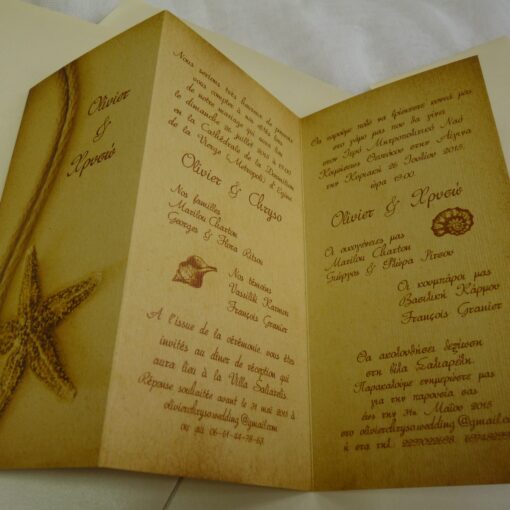 Olivier
&
Χρυσώ
Nous serions très heureux de pouvoir
vous compter à nos côtés lors
de notre mariage qui aura lieu
le dimanche 26 Juillet 2015 à 19.00
en la Cathédrale de la Dormition
de la Vierge (Metropoli) d'Egine
Olivier & Chryso
Nos familles
Marilou Charton
Georges & Flora Ritsou
Nos témoins
Vassiliki Karmou
François Granier
A l'issue de la cérémonie, vous êtes
invités au dîner de réception qui
aura lieu à la Villa Saliarelis
Réponse souhaitée avant le 31 mai 2015 à
olivierchryso.wedding@gmail.com
ou au 06-61-44-78-63
Θα χαρούμε πολύ να βρίσκεστε κοντά μας
στο γάμο μας που θα γίνει
στον Ιερό Μητροπολιτικό Ναό
Κοιμήσεως Θεοτόκου στην Αίγινα
την Κυριακή 26 Ιουλίου 2015,
ώρα 19.00
Olivier & Χρυσώ
Οι οικογένειές μας
Marilou Charton
Γιώργος & Φλώρα Ρίτσου
Οι κουμπάροι μας
Βασιλική Κάρμου
François Granier
Θα ακολουθήσει δεξίωση
στη βίλα Σαλιαρέλη.
Παρακαλούμε ενημερώστε μας
για την παρουσία σας
έως την 31η Μαΐου 2015
στο olivierchryso.wedding@gmail.co
ή στα τηλ.